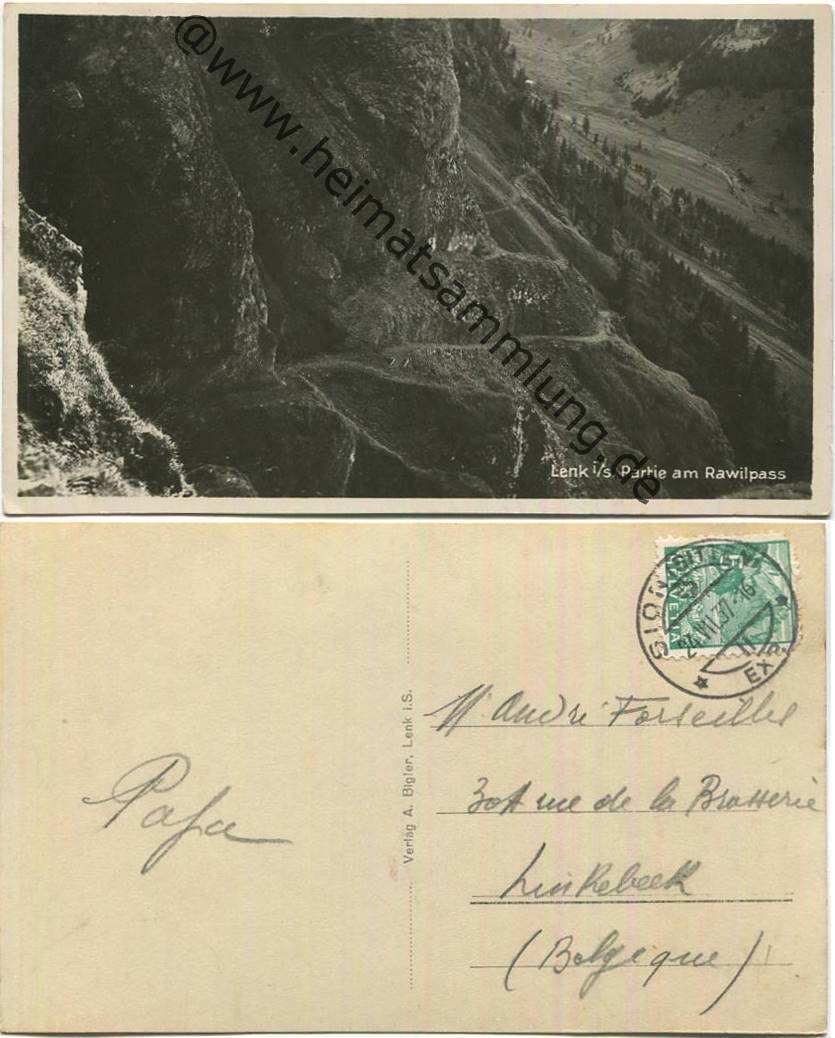 @www.heimatsammlung.de
Lenk i/s. Partie am Rawilpass
HELVETIA
SION (SITTEN)
24.VII.37-16
EXP.
Verlag A. Bigler, Lenk i.S.
Papa
Mr André Forseilles
rue de la Brasserie
Linkebeek
(Belgique)